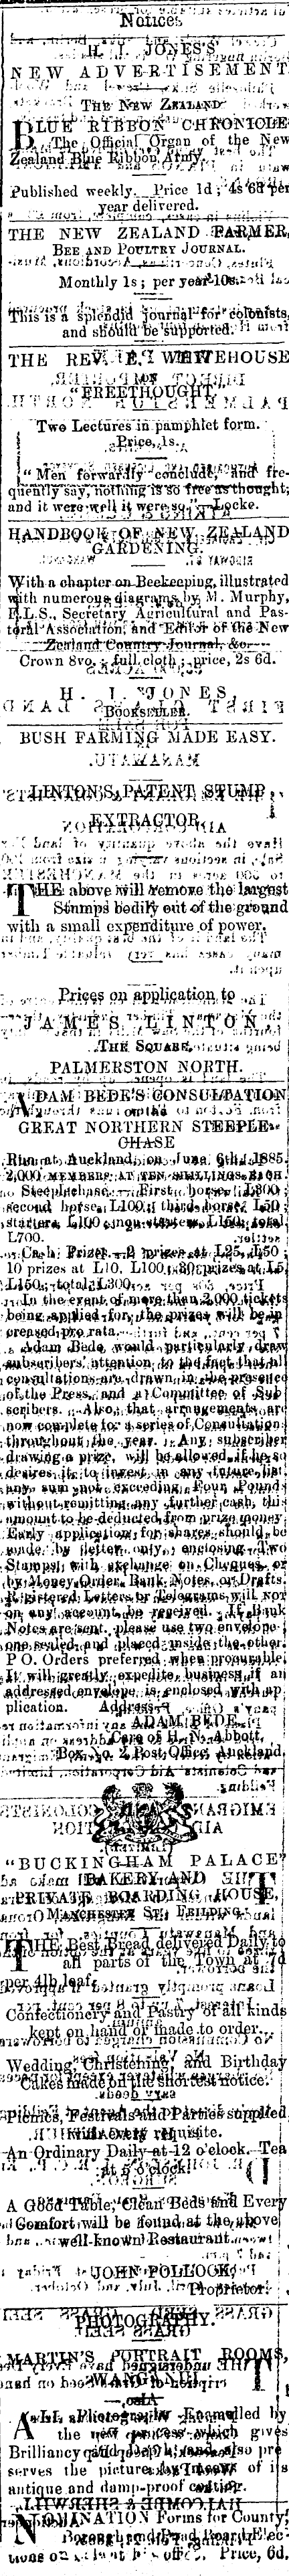 Notices
H. I. JONES'S
NEW ADVERTISEMENT
THE NEW ZEALAND
BLUE RIBBON CHRONICLE
The Official Organ of the New
Zealand Blue Ribbon Army.
Published weekly. Price 1d; 4s 6d per
year delivered.
THE NEW ZEALAND FARMER,
BEE AND POULTRY JOURNAL.
Monthly 1s; per year 10s.
This is a splendid journal for colonists,
and should be supported.
THE REV. E. WHITEHOUSE
ON
"FREETHOUGHT,"
Two Lectures in pamphlet form.
Price, 1s.
"Men forwardly conclude, and fre-
quently say, nothing is so free as thought;
and it were well it were so."—Locke.
HANDBOOK OF NEW ZEALAND
GARDENING.
With a chapter on Beekeeping, illustrated
with numerous diagrams by M. Murphy,
F.L.S., Secretary Agricultural and Pas-
toral Association, and Editor of the New
Zealand Country Journal, &c.
Crown 8vo., full cloth; price, 2s 6d.
H. I. JONES,
BOOKSELLER.
BUSH FARMING MADE EASY.
LINTON'S PATENT STUMP
EXTRACTOR.
THE above will remove the largest
Stumps bodily out of the ground
with a small expenditure of power.
Prices on application to
JAMES LINTON,
THE SQUARE,
PALMERSTON NORTH.
ADAM BEDE'S CONSULTATION
on the
GREAT NORTHERN STEEPLE-
CHASE
Run at Auckland, on June 6th, 1885.
2,000 MEMBERS AT TEN SHILLINGS EACH
Steeplechase.—First horse, L300;
second horse, L100; third horse, L50;
starters, L100; non-starters, L150; total
L700.
Cash Prizes—2 prizes at L25, L50;
10 prizes at L10, L100; 30 prizes at L5,
L150; total L300.
In the event of more than 2,000 tickets
being applied for the prizes will be in
creased pro rata.
Adam Bede would particularly draw
subscribers' attention to the fact that all
consultations are drawn in the presence
of the Press and a Committee of Sub
scribers. Also, that arrangements are
now complete for a series of Consultations
throughout the year. Any subscriber
drawing a prize, will be allowed, if he so
desires it, to invest in any future list
any sum not exceeding Four Pounds
without remitting any further cash, this
amount to be deducted from prize money.
Early application for shares should be
made by letter only, enclosing Two
Stamps, with exchange on Cheques, or
by Money Order, Bank Notes, or Drafts.
Registered Letters or Telegrams will not
on any account be received. If Bank
Notes are sent, please use two envelopes,
one sealed and placed inside the other.
P O. Orders preferred when procurable.
It will greatly expedite business if an
addressed envelope is enclosed with ap
plication. Address—
ADAM BEDE,
Care of H. N. Abbott,
Box No. 2, Post Office, Auckland.
"BUCKINGHAM PALACE"
BAKERY AND
PRIVATE BOARDING HOUSE,
MANCHESTER ST., FEILDING.
THE Best Bread delivered Daily to
all parts of the Town at 7d
per 4lb loaf.
Confectionery and Pastry of all kinds
kept on hand or made to order.
Wedding, Christening, and Birthday
Cakes made on the shortest notice.
Picnics, Festivals and Parties supplied
with every requisite.
An Ordinary Daily at 12 o'clock. Tea
at 6 o'clock.
A Good Table, Clean Beds and Every
Comfort will be found at the above
well-known Restaurant.
JOHN POLLOCK,
Proprietor.
PHOTOGRAPHY.
MARTIN'S PORTRAIT ROOMS,
WANGANUI
ALL Photographs Enamelled by
the new process which gives
Brilliancy and Depth, and also pre
serves the picture by means of its
antique and damp-proof coating.
NOMINATION Forms for County,
Borough and Road Board Elec-
tions on sale at this office. Price, 6d.